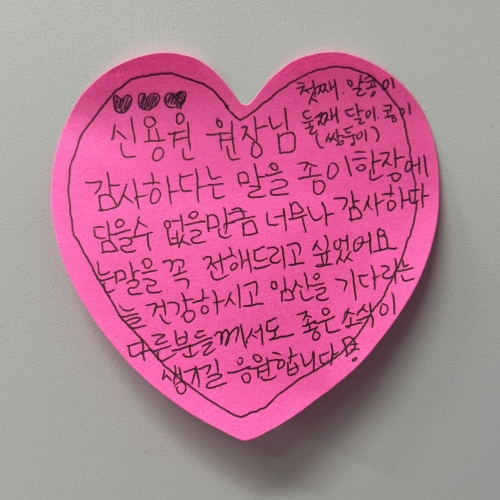 첫째. 알콩이
둘째 달이.콩이
(쌍둥이)
신용원 원장님
감사하다는 말을 종이한장에
담을수 없을만큼 너무나 감사하다
는말을 꼭 전해드리고 싶었어요
늘 건강하시고 임신을 기다리는
다른분들께서도 좋은 소식이
생기길 응원합니다